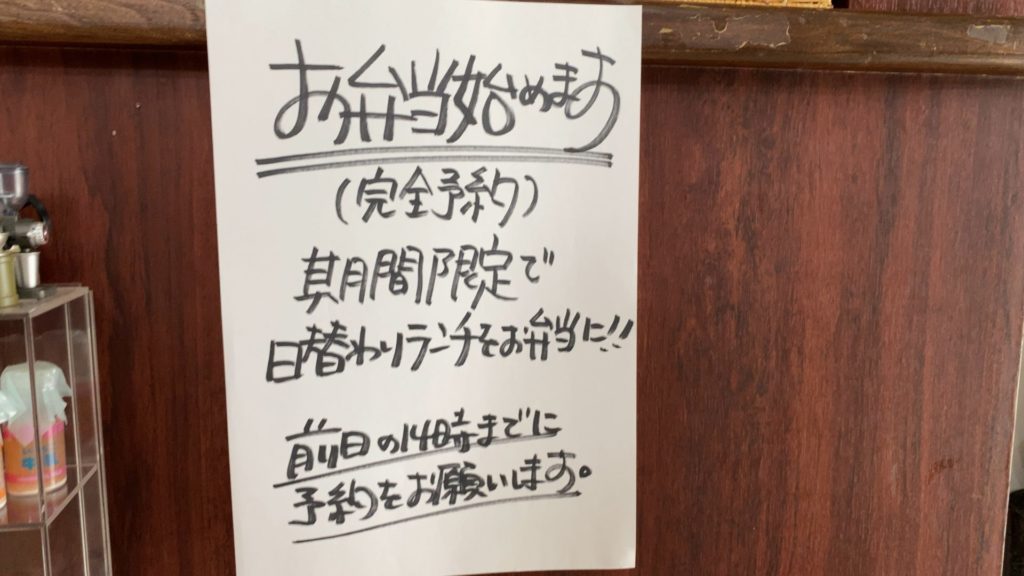 お弁当始めます
(完全予約)
期間限定で
日替わりランチをお弁当に!!
前日の14時までに
予約をお願いします。